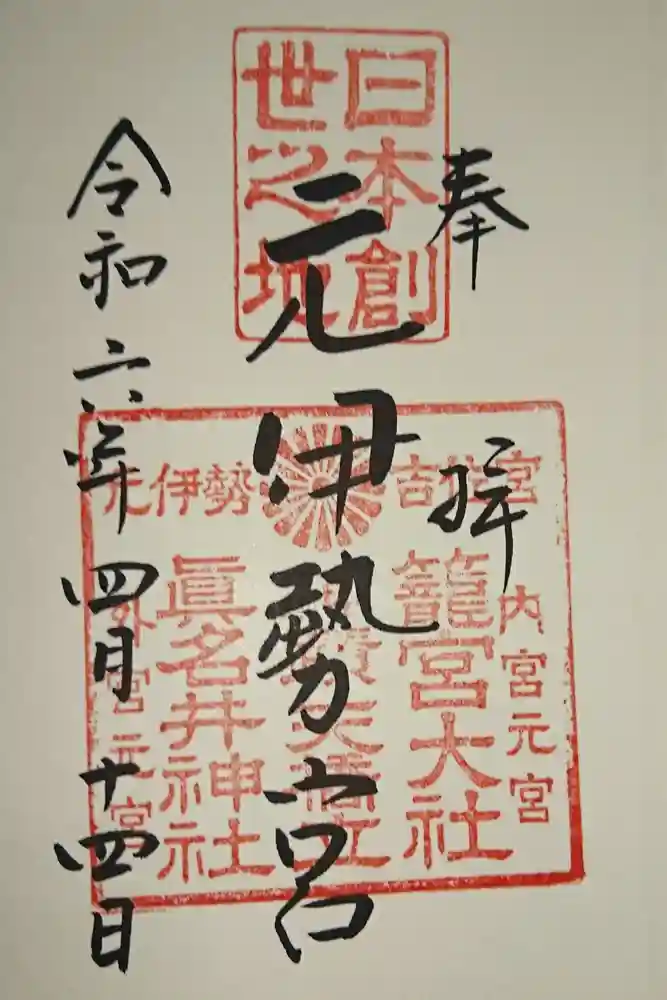 奉拝
日本創
世之地
元伊勢宮
令和六年四月十四日
元伊勢
吉佐宮
内宮元宮
籠宮大社
天橋立
眞名井神社
外宮元宮